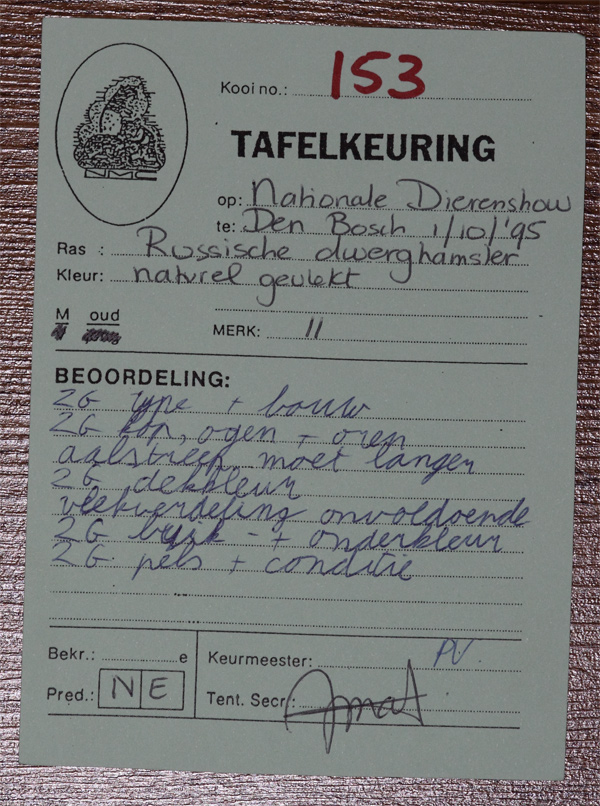 NMC
Kooi no.: 153
TAFELKEURING
op: Nationale Dierenshow
te: Den Bosch 1/10/'95
Ras : Russische dwerghamster
Kleur: naturel gevlekt
M oud
MERK: 11
BEOORDELING:
ZG type + bouw
ZG kop, ogen + oren
aalstreep moet langer
ZG dekkleur
vlekverdeling onvoldoende
ZG buik - + onderkleur
ZG pels + conditie
Bekr.: e
Keurmeester: PV.
Pred.: NE
Tent. Secr.: